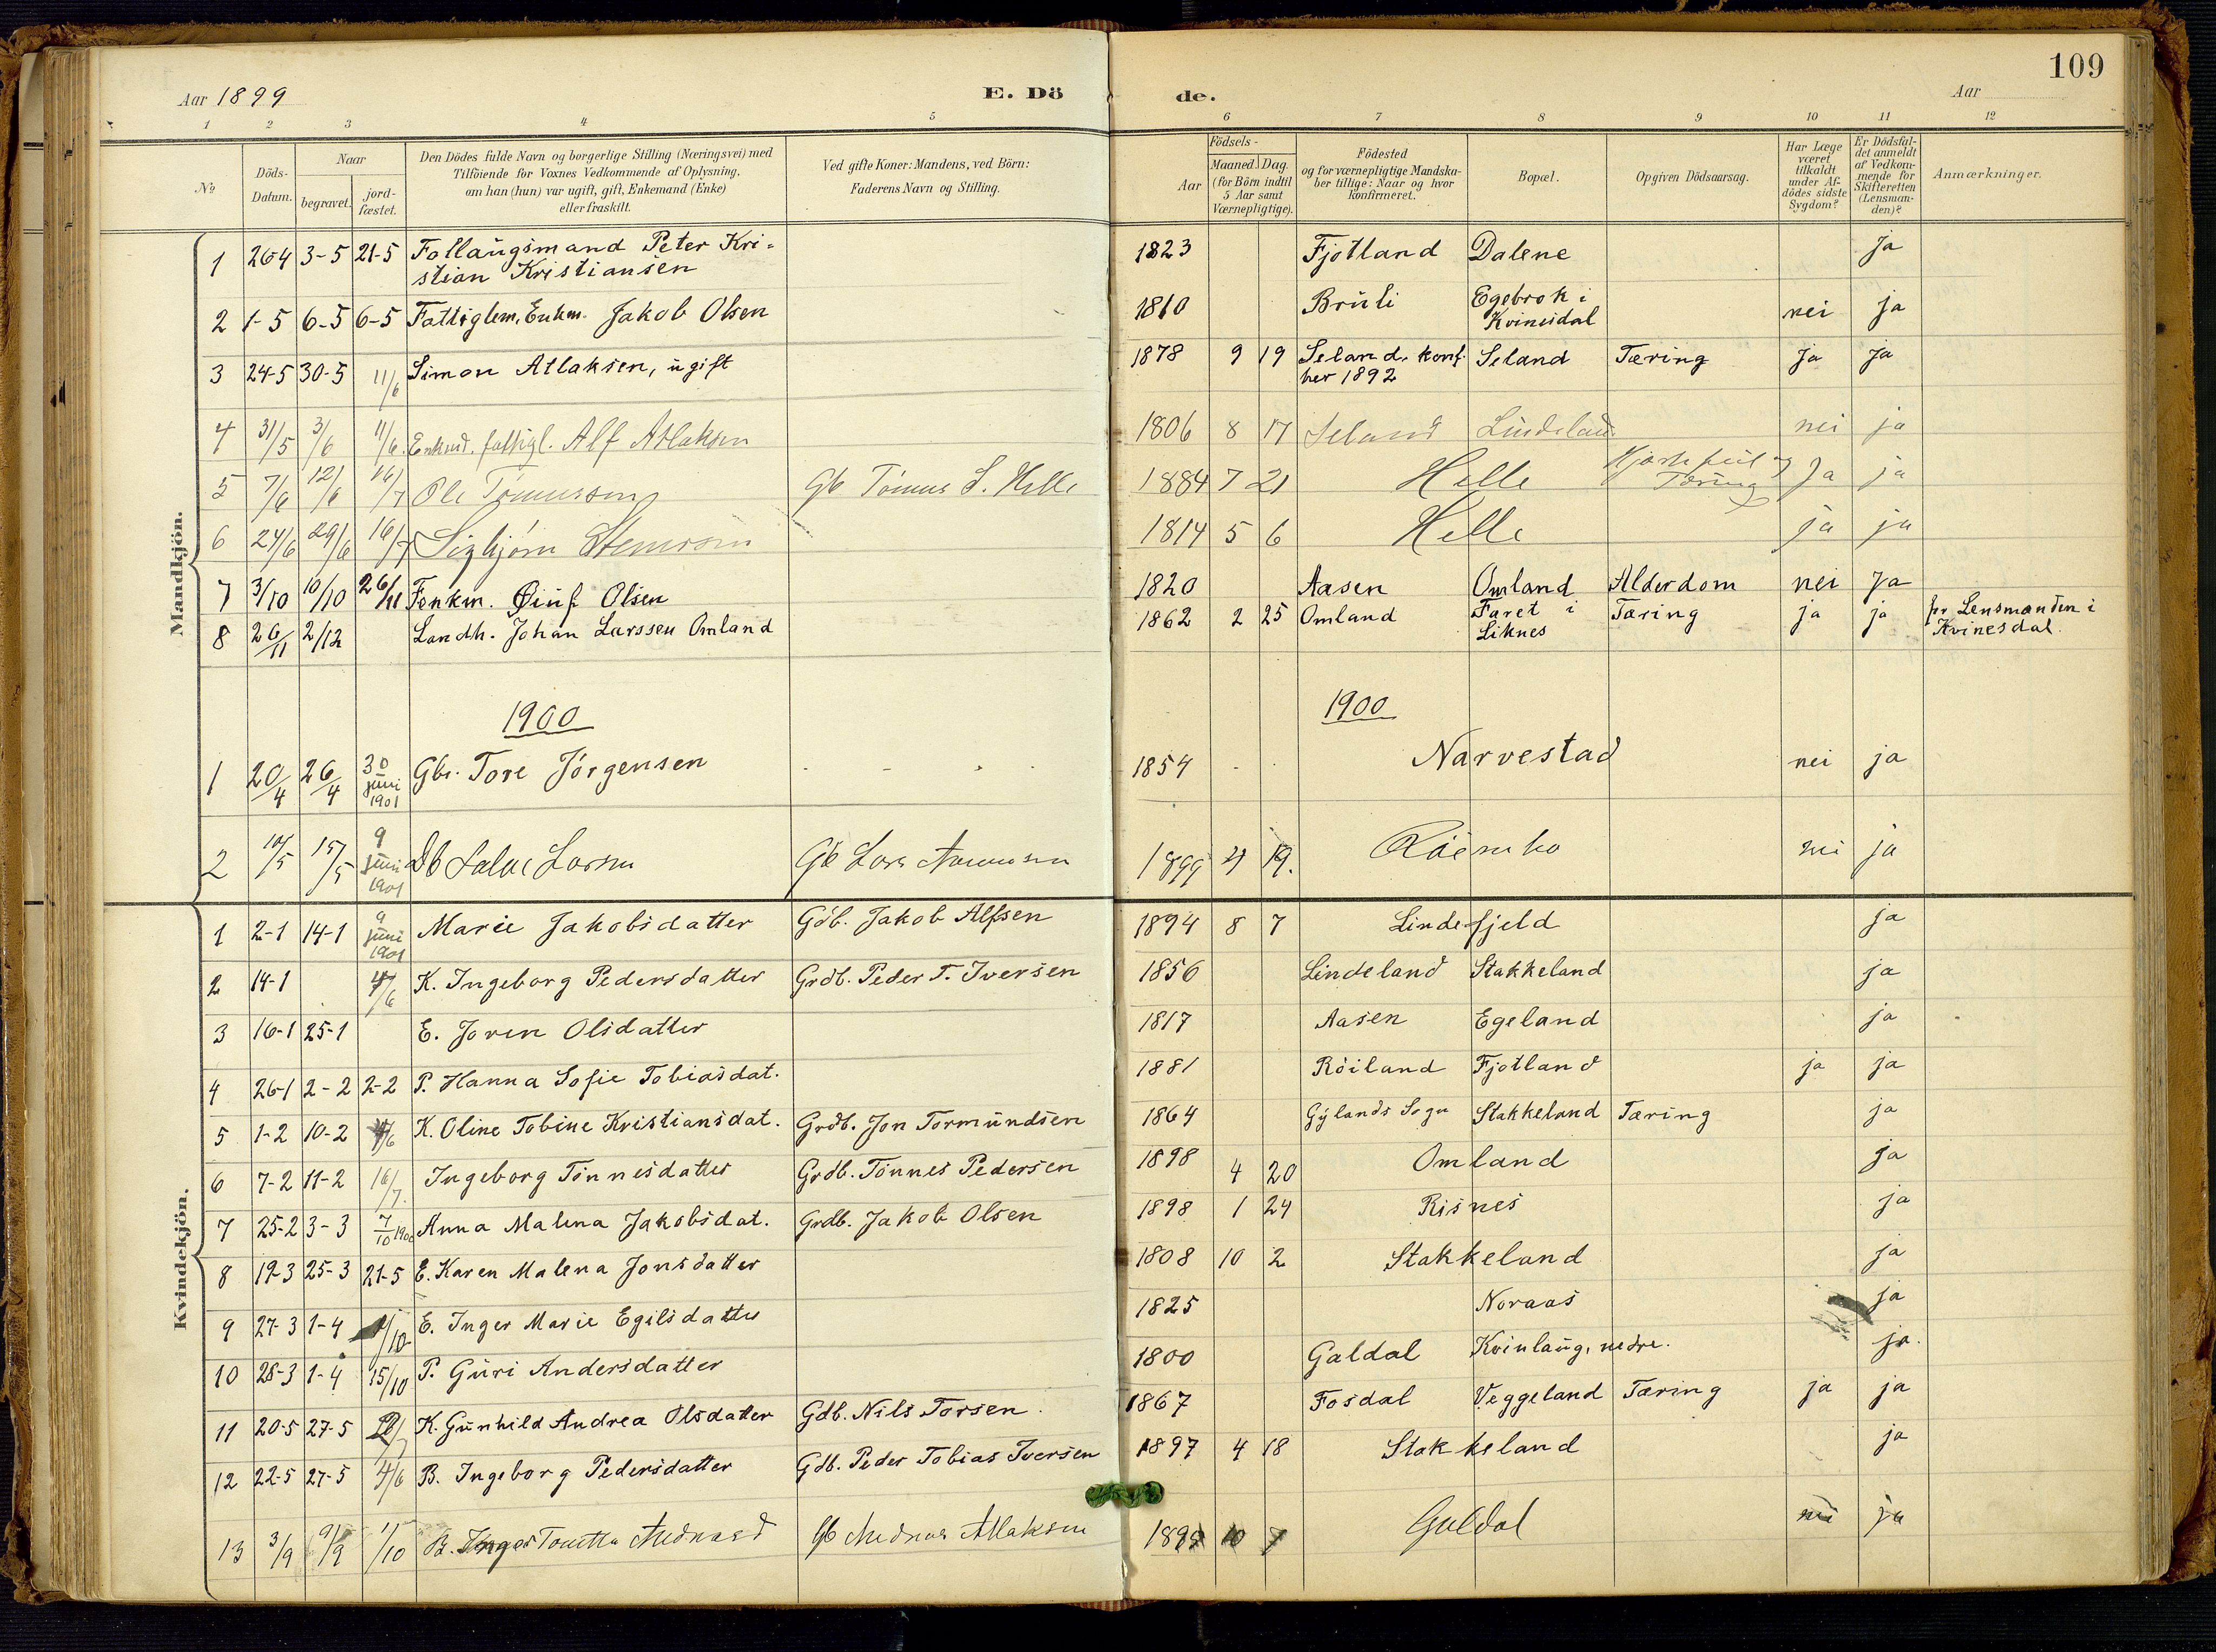 109
Aar 1899 E. Dö de. Aar
1 2 3 4 5 6 7 8 9 10 11 12
No
Döds-Datum.
Naar
begravet.
jord-fæstet.
Den Dödes fulde Navn og borgerlige Stilling (Næringsvei) med
Tilföiende for Voxnes Vedkommende af Oplysning,
om han (hun) var ugift, gift, Enkemand (Enke)
eller fraskilt.
Ved gifte Koner: Mandens, ved Börn:
Faderens Navn og Stilling.
Födsels-
Aar
Maaned. Dag.
(for Börn indtil
5 Aar samt
Værnepligtige).
Födested
og for værnepligtige Mandska-
ber tillige: Naar og hvor
konfirmeret.
Bopæl.
Opgiven Dödsaarsag.
Har Læge
været
tilkaldt
under Af-
dödes sidste
Sygdom?
Er Dödsfal-
det anmeldt
af Vedkom-
mende for
Skifteretten
(Lensman-
den)?
Anmærkninger.
Mandkjön.
1 26-4 3-5 21-5 Follaugsmand Peter Kri- 1823 Fjotland Dalene ja
stian Kristiansen
2 1-5 6-5 6-5 Fattiglem, Enkm. Jakob Olsen 1810 Bruli Egebrok i nei ja
Kvinesdal
3 24-5 30-5 11/6 Simon Atlaksen, ugift 1878 9 19 Seland, konf. Seland Tæring Ja Ja
her 1892
4 31/5 3/6 11/6 Enkmd. fattigl. Alf Atlaksen 1806 8 17 Seland Lindeland nei ja
5 7/6 12/6 16/7 Ole Tønnesson Gb Tønnes S. Helle 1884 7 21 Helle Hjertefeil og Ja ja
Tæring
6 24/6 29/6 16/7 Sigbjørn 1814 5 6 Helle ja ja
7 3/10 10/10 26/11 Fenkm. Øiuf Olsen 1820 Aasen Omland Alderdom nei Ja
8 26/11 2/12 Landh. Johan Larssen Omland 1862 2 25 Omland Faret i Tæring ja ja for Lensmanden i
Liknes Kvinesdal.
1900 1900
1 20/4 26/4 30 juni 1901 Gbr. Tore Jörgensen 1854 Narvestad nei ja
2 10/5 15/5 9 juni 1901 Gb Lars 1899 4 19. nei ja
Kvindekjön.
1 2-1 14-1 9 juni 1901 Marie Jakobsdatter Gdb. Jakob Alfsen 1894 8 7 Lindefjeld ja
2 14-1 K. Ingeborg Pedersdatter Grdb. Peder T. Iversen 1856 Lindeland Stakkeland ja
3 16-1 25-1 E. Joren Olsdatter 1817 Aasen Egeland ja
4 26-1 2-2 2-2 P. Hanna Sofie Tobiasdat. 1881 Röiland Fjotland ja ja
5 1-2 10-2 K. Oline Tobine Kristiansdat. Grdb. Jon Tormundsen 1864 Gylands Sogn Stakkeland Tæring ja
6 7-2 11-2 16/7. Ingeborg Tönnesdatter Grdb. Tönnes Pedersen 1898 4 20 Omland ja
7 25-2 3-3 7/10 1900 Anna Malena Jakobsdat. Grdb. Jakob Olsen 1898 1 24 Risnes ja
8 19-3 25-3 21-5 E. Karen Malena Jonsdatter 1808 10 2 Stakkeland ja
9 27-3 1-4 1/10 E. Inger Marie Egilsdatter 1825 Noraas ja
10 28-3 1-4 15/10 P. Guri Andersdatter 1800 Galdal Kvinlaug, nedre. ja.
11 20-5 27-5 K. Gunhild Andrea Olsdatter Gdb. Nils Torsen 1867 Fosdal Veggeland Tæring ja ja
12 22-5 27-5 4/6 B. Ingeborg Pedersdatter Gdb. Peder Tobias Iversen 1897 4 18 Stakkeland ja
13 3/9 9/9 1/10 B. Inger Gb Atlaksen Galdal nei ja